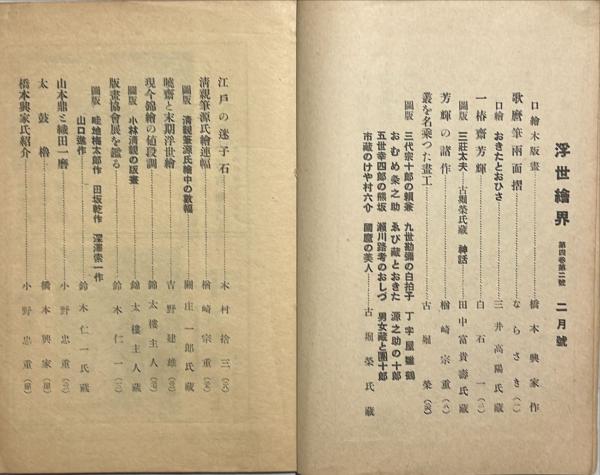 浮世繪界 第四卷第二號 二月號
口繪木版畫 橋本興家作
歌麿筆兩面摺 ならさき(一)
口繪 おきたとおひさ 三井高陽氏藏
一椿齋芳輝 白石一(三)
圖版 三莊太夫―古堀榮氏藏 神話―田中富貴壽氏藏
芳輝の諸作 楢崎宗重(八)
叢を名乘つた畫工 古堀榮
圖版 三代宗十郎の賴兼 九世勘彌の白拍子 丁字屋雛鶴
おむめ粂之助 ゑび藏とおきた 源之助の十郎
五世幸四郎の熊坂 瀬川路考のおしづ 男女藏と團十郎
市藏のけや村六介 國麿の美人 古堀榮氏藏
江戶の迷子石 木村捨三
淸親筆源氏繪連幅 楢崎宗重
圖版 淸親筆源氏繪中の數幅 關庄一郎氏藏
曉齋と末期浮世繪 吉野建雄
現今錦繪の値段調 錦太樓主人
圖版 小林淸親の版畫 錦太樓主人藏
版畫協會展を鑑る 鈴木仁一
圖版 畦地梅太郎作 田坂乾作 深澤索一作
山口進作 鈴木仁一氏藏
山本鼎と織田一磨 小野忠重
太鼓橋 橋本興家
橋本興家氏紹介 小野忠重